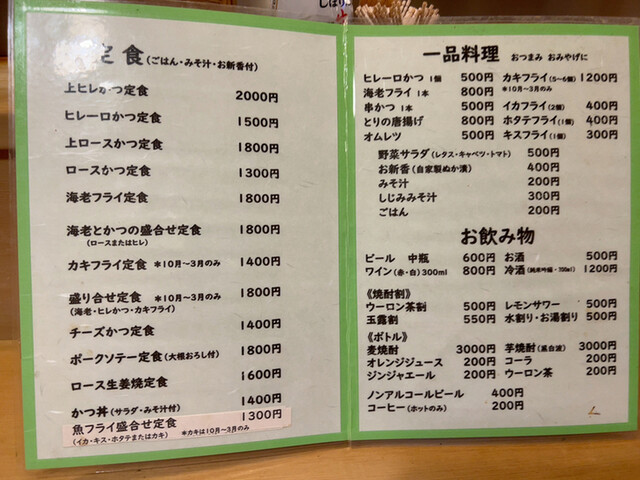 定食(ごはん・みそ汁・お新香付)
上ヒレかつ定食 2000円
ヒレ一口かつ定食 1500円
上ロースかつ定食 1800円
ロースかつ定食 1300円
海老フライ定食 1800円
海老とかつの盛合せ定食 1800円
(ロースまたはヒレ)
カキフライ定食 *10月~3月のみ 1400円
盛り合せ定食 *10月~3月のみ 1800円
(海老・ヒレかつ・カキフライ)
チーズかつ定食 1400円
ポークソテー定食(大根おろし付) 1800円
ロース生姜焼定食 1600円
かつ丼(サラダ・みそ汁付) 1400円
魚フライ盛合せ定食 1300円
(イカ・キス・ホタテまたはカキ) *カキは10月~3月のみ
一品料理 おつまみ おみやげに
ヒレ一口かつ 1個 500円 カキフライ(5~6個) 1200円
海老フライ 1本 800円 *10月~3月のみ
串かつ 1本 500円 イカフライ(2個) 400円
とりの唐揚げ 800円 ホタテフライ(1個) 400円
オムレツ 500円 キスフライ(1個) 300円
野菜サラダ(レタス・キャベツ・トマト) 500円
お新香(自家製ぬか漬) 400円
みそ汁 200円
しじみみそ汁 300円
ごはん 200円
お飲み物
ビール 中瓶 600円 お酒 500円
ワイン(赤・白)300ml 800円 冷酒(純米吟醸・300ml) 1200円
《焼酎割》
ウーロン茶割 500円 レモンサワー 500円
玉露割 550円 水割り・お湯割り 500円
《ボトル》
麦焼酎 3000円 芋焼酎(黒白波) 3000円
オレンジジュース 200円 コーラ 200円
ジンジャエール 200円 ウーロン茶 200円
ノンアルコールビール 400円
コーヒー(ホットのみ) 200円